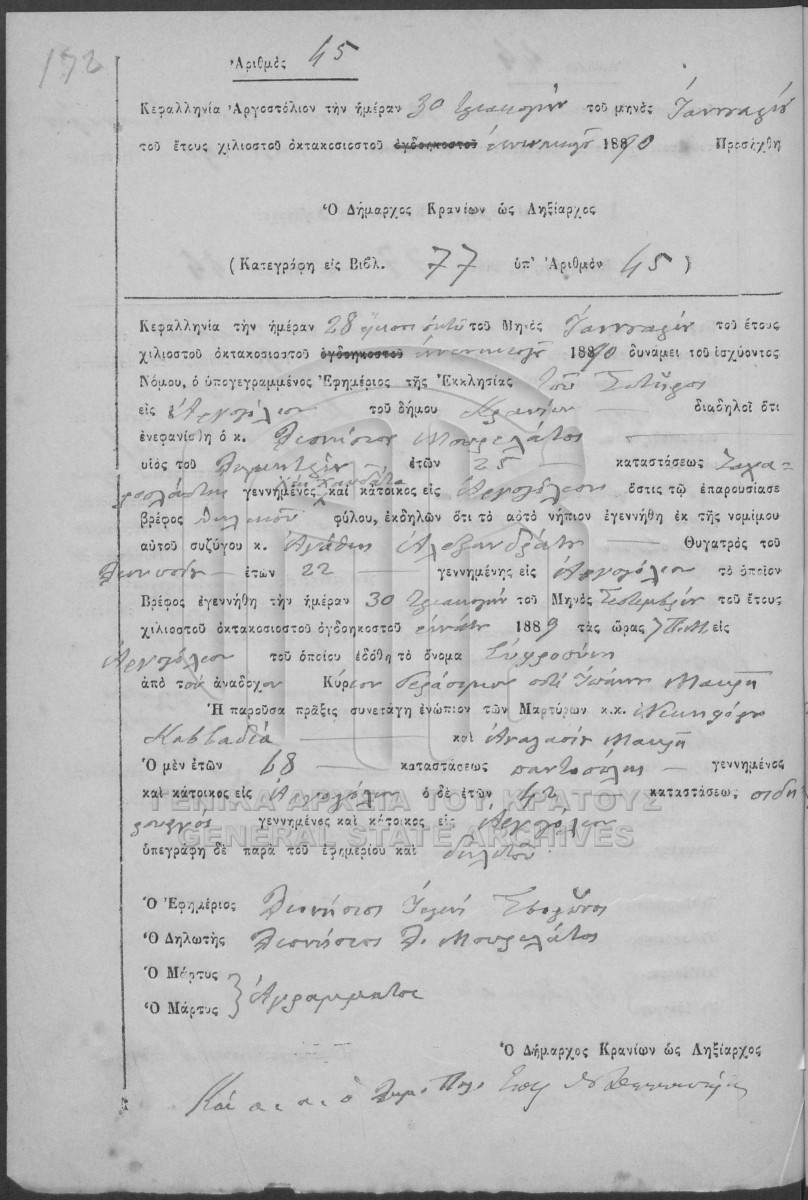 172
Ἀριθμὸς 45
Κεφαλληνία Ἀργοστόλιον τὴν ἡμέραν 30 τριακοστὴν τοῦ μηνὸς Ἰανουαρίου
τοῦ ἔτους χιλιοστοῦ ὀκτακοσιοστοῦ ὀγδοηκοστοῦ ἐννενηκοστοῦ 1890 Προσήχθη
Ὁ Δήμαρχος Κρανίων ὡς Ληξίαρχος
(Κατεγράφη εἰς Βιβλ. 77 ὑπ' Ἀριθμὸν 45)
Κεφαλληνία τὴν ἡμέραν 28 εἴκοσι ὀκτὼ τοῦ Μηνὸς Ἰανουαρίου τοῦ ἔτους
χιλιοστοῦ ὀκτακοσιοστοῦ ὀγδοηκοστοῦ ἐννενηκοστοῦ 1890 δυνάμει τοῦ ἰσχύοντος
Νόμου, ὁ ὑπογεγραμμένος Ἐφημέριος τῆς Ἐκκλησίας τοῦ Σωτῆρος
εἰς Ἀργοστόλιον τοῦ δήμου Κρανίων διαδηλοῖ ὅτι
ἐνεφανίσθη ὁ κ. Διονήσιος Μουρελάτος
υἱὸς τοῦ Δημητρίου ἐτῶν 25 καταστάσεως Ζαχα-
ροπλάστης γεννημένος καὶ κάτοικος εἰς Ἀργοστόλιον ὅστις τῷ ἐπαρουσίασε
βρέφος θηλυκοῦ φύλου, ἐκδηλῶν ὅτι τὸ αὐτὸ νήπιον ἐγεννήθη ἐκ τῆς νομίμου
αὐτοῦ συζύγου κ. Ἀγάθης Ἀλεξανδράτου Θυγατρὸς τοῦ
Διονυσίου ἐτῶν 22 γεννημένης εἰς Ἀργοστόλιον τὸ ὁποῖον
Βρέφος ἐγεννήθη τὴν ἡμέραν 30 τριακοστὴν τοῦ Μηνὸς Σεπτεμβρίου τοῦ ἔτους
χιλιοστοῦ ὀκτακοσιοστοῦ ὀγδοηκοστοῦ ἐννάτου 1889 τὰς ὥρας 7 Π.Μ. εἰς
Ἀργοστόλιον τοῦ ὁποίου ἐδόθη τὸ ὄνομα Εὐφροσύνη
ἀπὸ τοῦ ἀναδοχον Κύριον Γεράσιμον ποτὲ Ἰωάννη Μαυρῆ
Ἡ παροῦσα πρᾶξις συνετάγη ἐνώπιον τῶν Μαρτύρων κ.κ. Νικηφόρου
Καββαδία καὶ Ἀναστασίου Μαυρῆ
Ὁ μὲν ἐτῶν 68 καταστάσεως παντοπώλης γεννημένος
καὶ κάτοικος εἰς Ἀργοστόλιον ὁ δὲ ἐτῶν 42 καταστάσεως σιδη
ρουργὸς γεννημένος καὶ κάτοικος εἰς Ἀργοστόλιον
ὑπεγράφη δὲ παρὰ τοῦ ἐφημερίου καὶ δηλωτοῦ
Ὁ Ἐφημέριος Διονήσιος Ἱερεὺς
Ὁ Δηλωτὴς Διονήσιος Δ. Μουρελάτος
Ὁ Μάρτυς
Ὁ Μάρτυς } Ἀγράμματοι
Ὁ Δήμαρχος Κρανίων ὡς Ληξίαρχος
ΓΕΝΙΚΑ ΑΡΧΕΙΑ ΤΟΥ ΚΡΑΤΟΥΣ
GENERAL STATE ARCHIVES